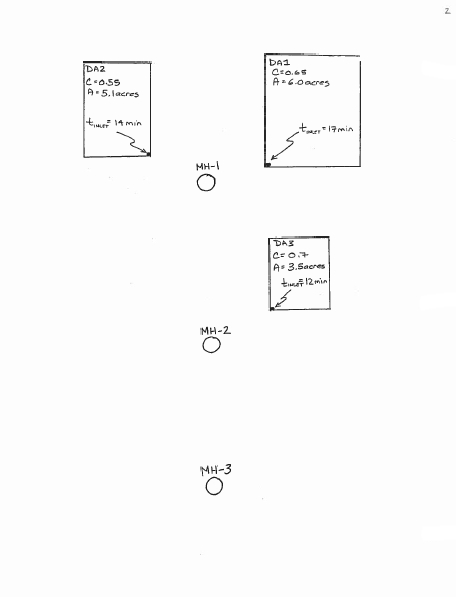 2
DA2
C=0.55
A=5.1acres
tINLET=14min
DA1
C=0.65
A=6.0acres
tINLET=17min
MH-1
DA3
C=0.7
A=3.5acres
tINLET=12min
MH-2
MH-3